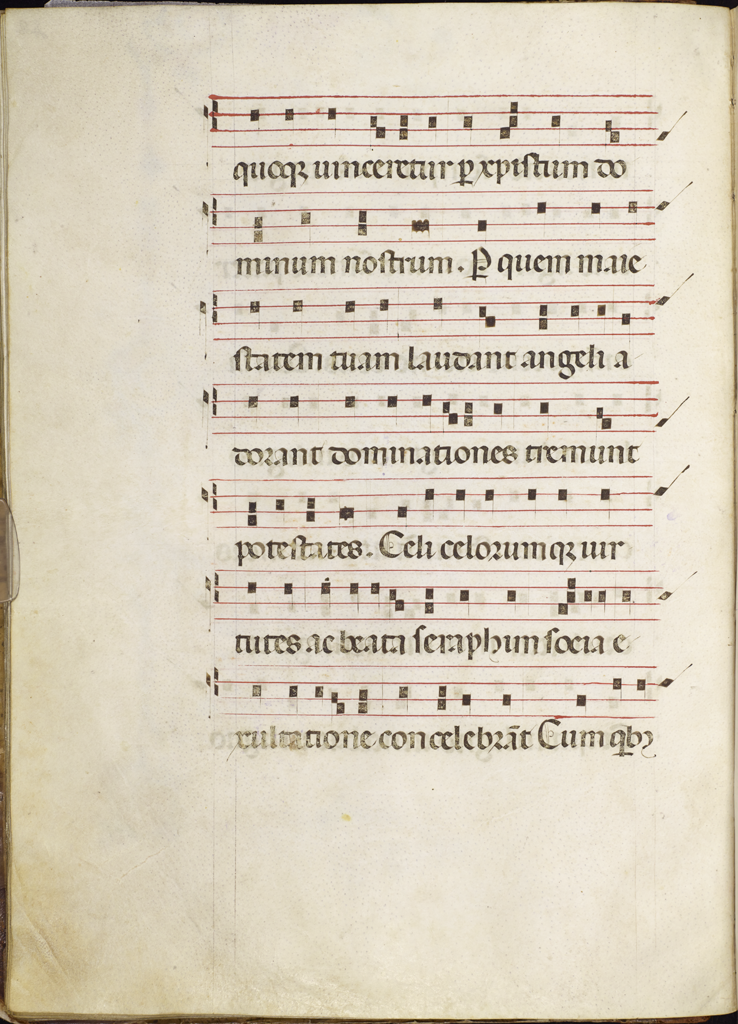 quoqꝫ uinceretur ꝑ xp̄istum do
minum nostrum. P̱ quem maie
statem tuam laudant angeli a
dorant dominationes tremunt
potestates. Celi celorumqꝫ uir
tutes ac beata seraphim socia e
xultatione concelebrāt Cum qͥbꝫ